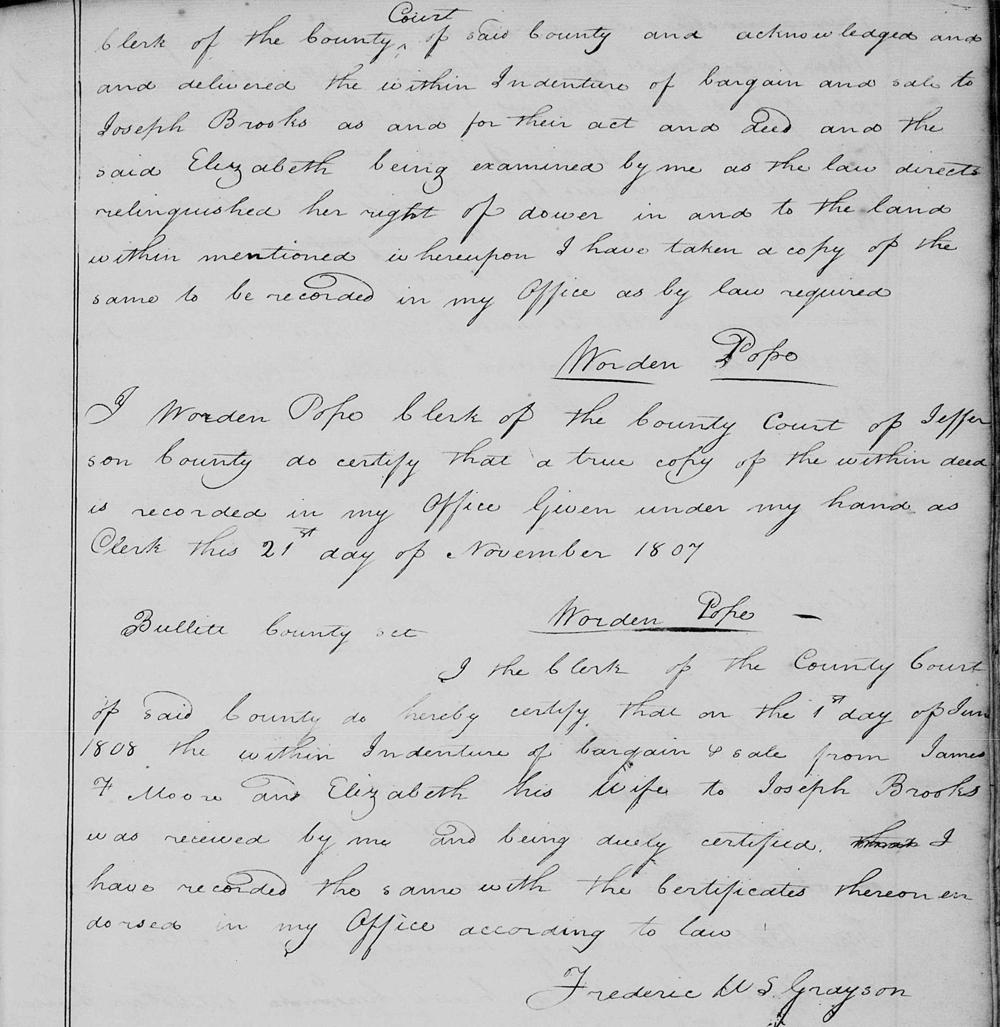 Court
Clerk of the County ^ of said County and acknowledged and
and delivered the within Indenture of bargain and sale to
Joseph Brooks as and for their act and deed and the
said Elizabeth being examined by me as the law directs
relinquished her right of dower in and to the land
within mentioned whereupon I have taken a copy of the
same to be recorded in my Office as by law required
Worden Pope
I Worden Pope Clerk of the County Court of Jeffer
son County do certify that a true copy of the within deed
is recorded in my Office Given under my hand as
Clerk this 21st day of November 1807
Worden Pope —
Bullitt County sct
I the Clerk of the County Court
of said County do hereby certify that on the 1st day of June
1808 the within Indenture of bargain & sale from James
F Moore and Elizabeth his Wife to Joseph Brooks
was received by me and being duely certified. that I
have recorded the same with the Certificates thereon en
dorsed in my Office according to law
Frederic W S Grayson